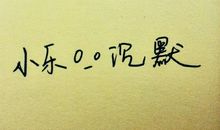 小乐0_0沉默